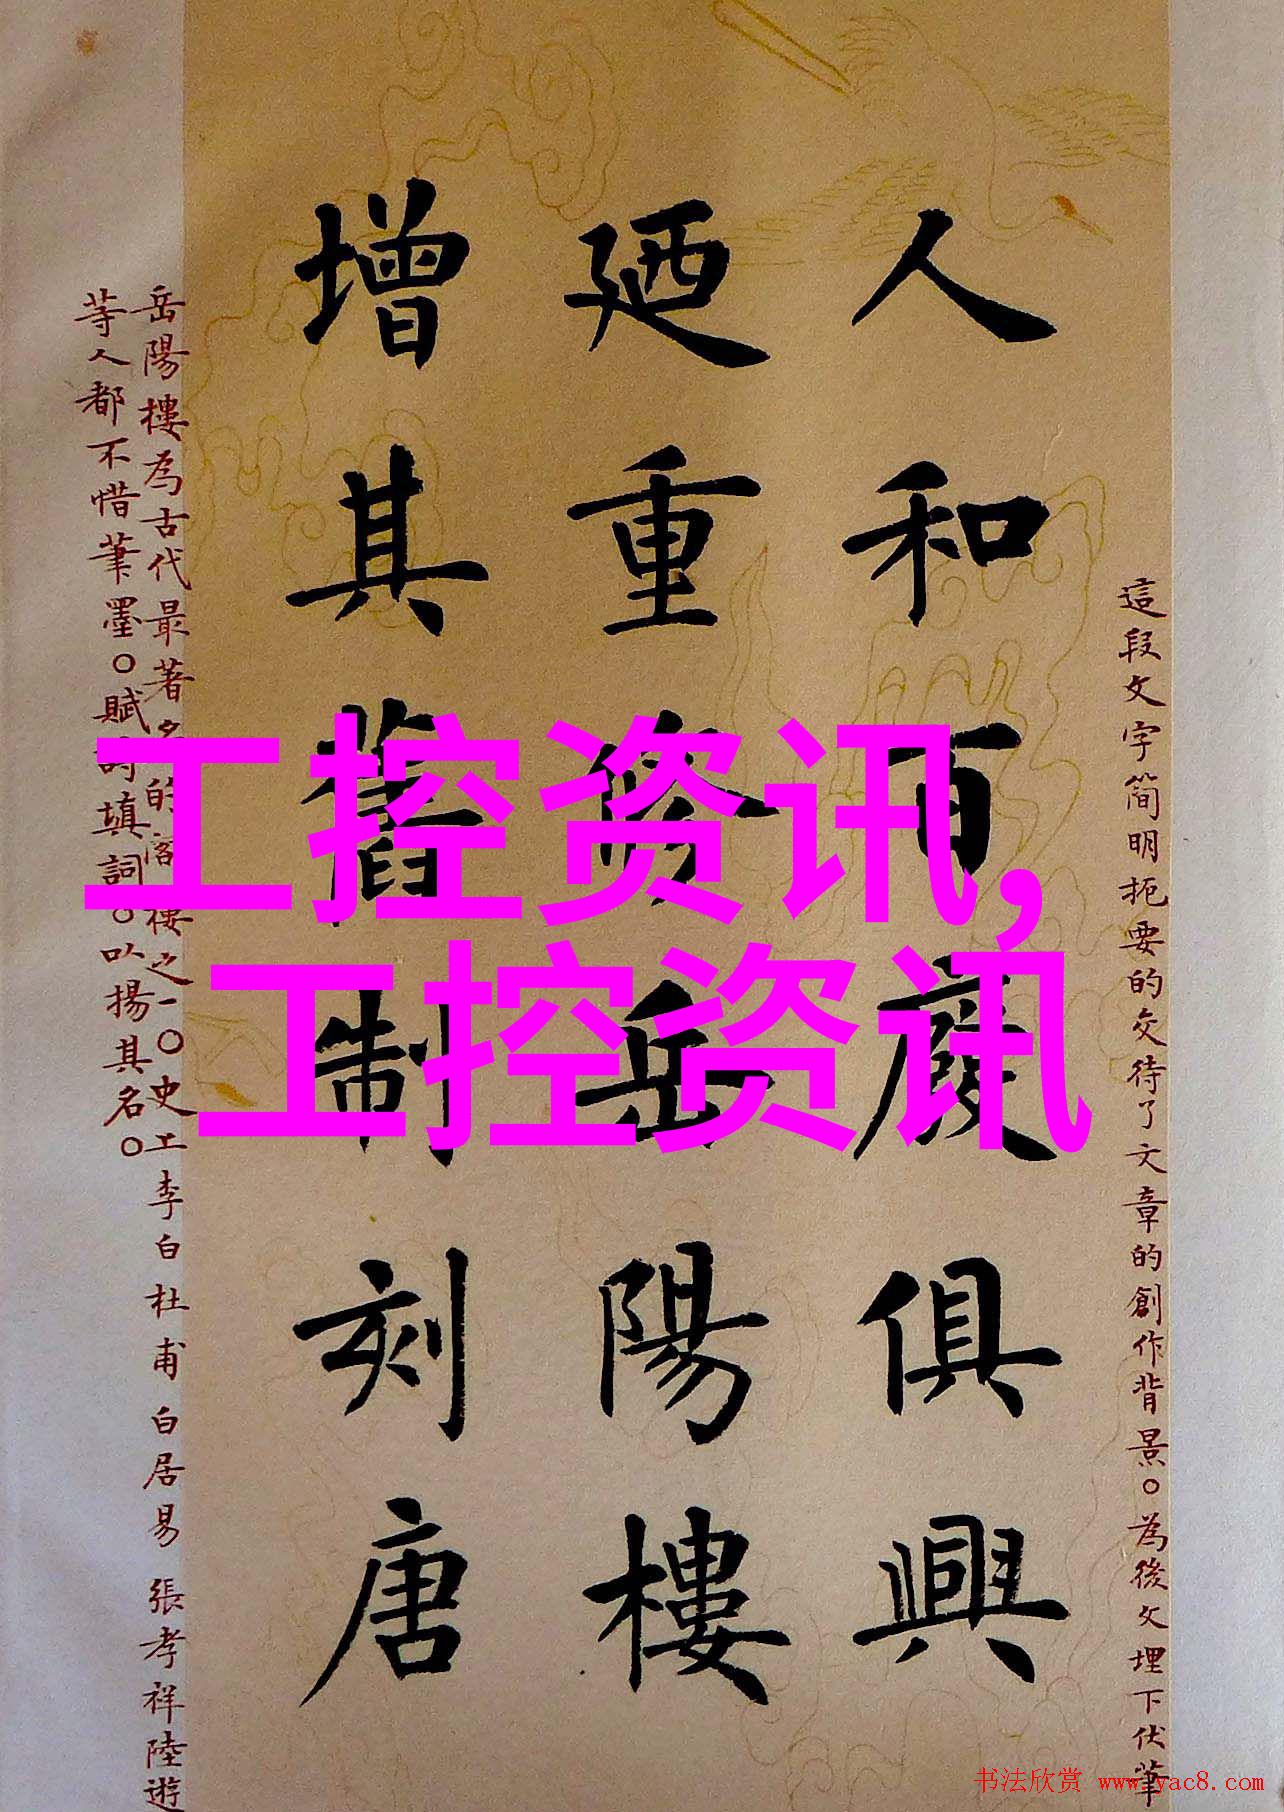 這段文字简明扼要的交待了文章的創作背景。為後文埋下伏筆
人和百廢俱興
廼重修岳陽樓
增其舊制刻唐
岳陽樓為古代最著名的閣樓之一。史上李白杜甫白居易張孝祥陸遊
等人都不惜筆墨。賦詩填詞。以揚其名。
工控资讯,
工控资讯
书法欣赏 www.yac8.com